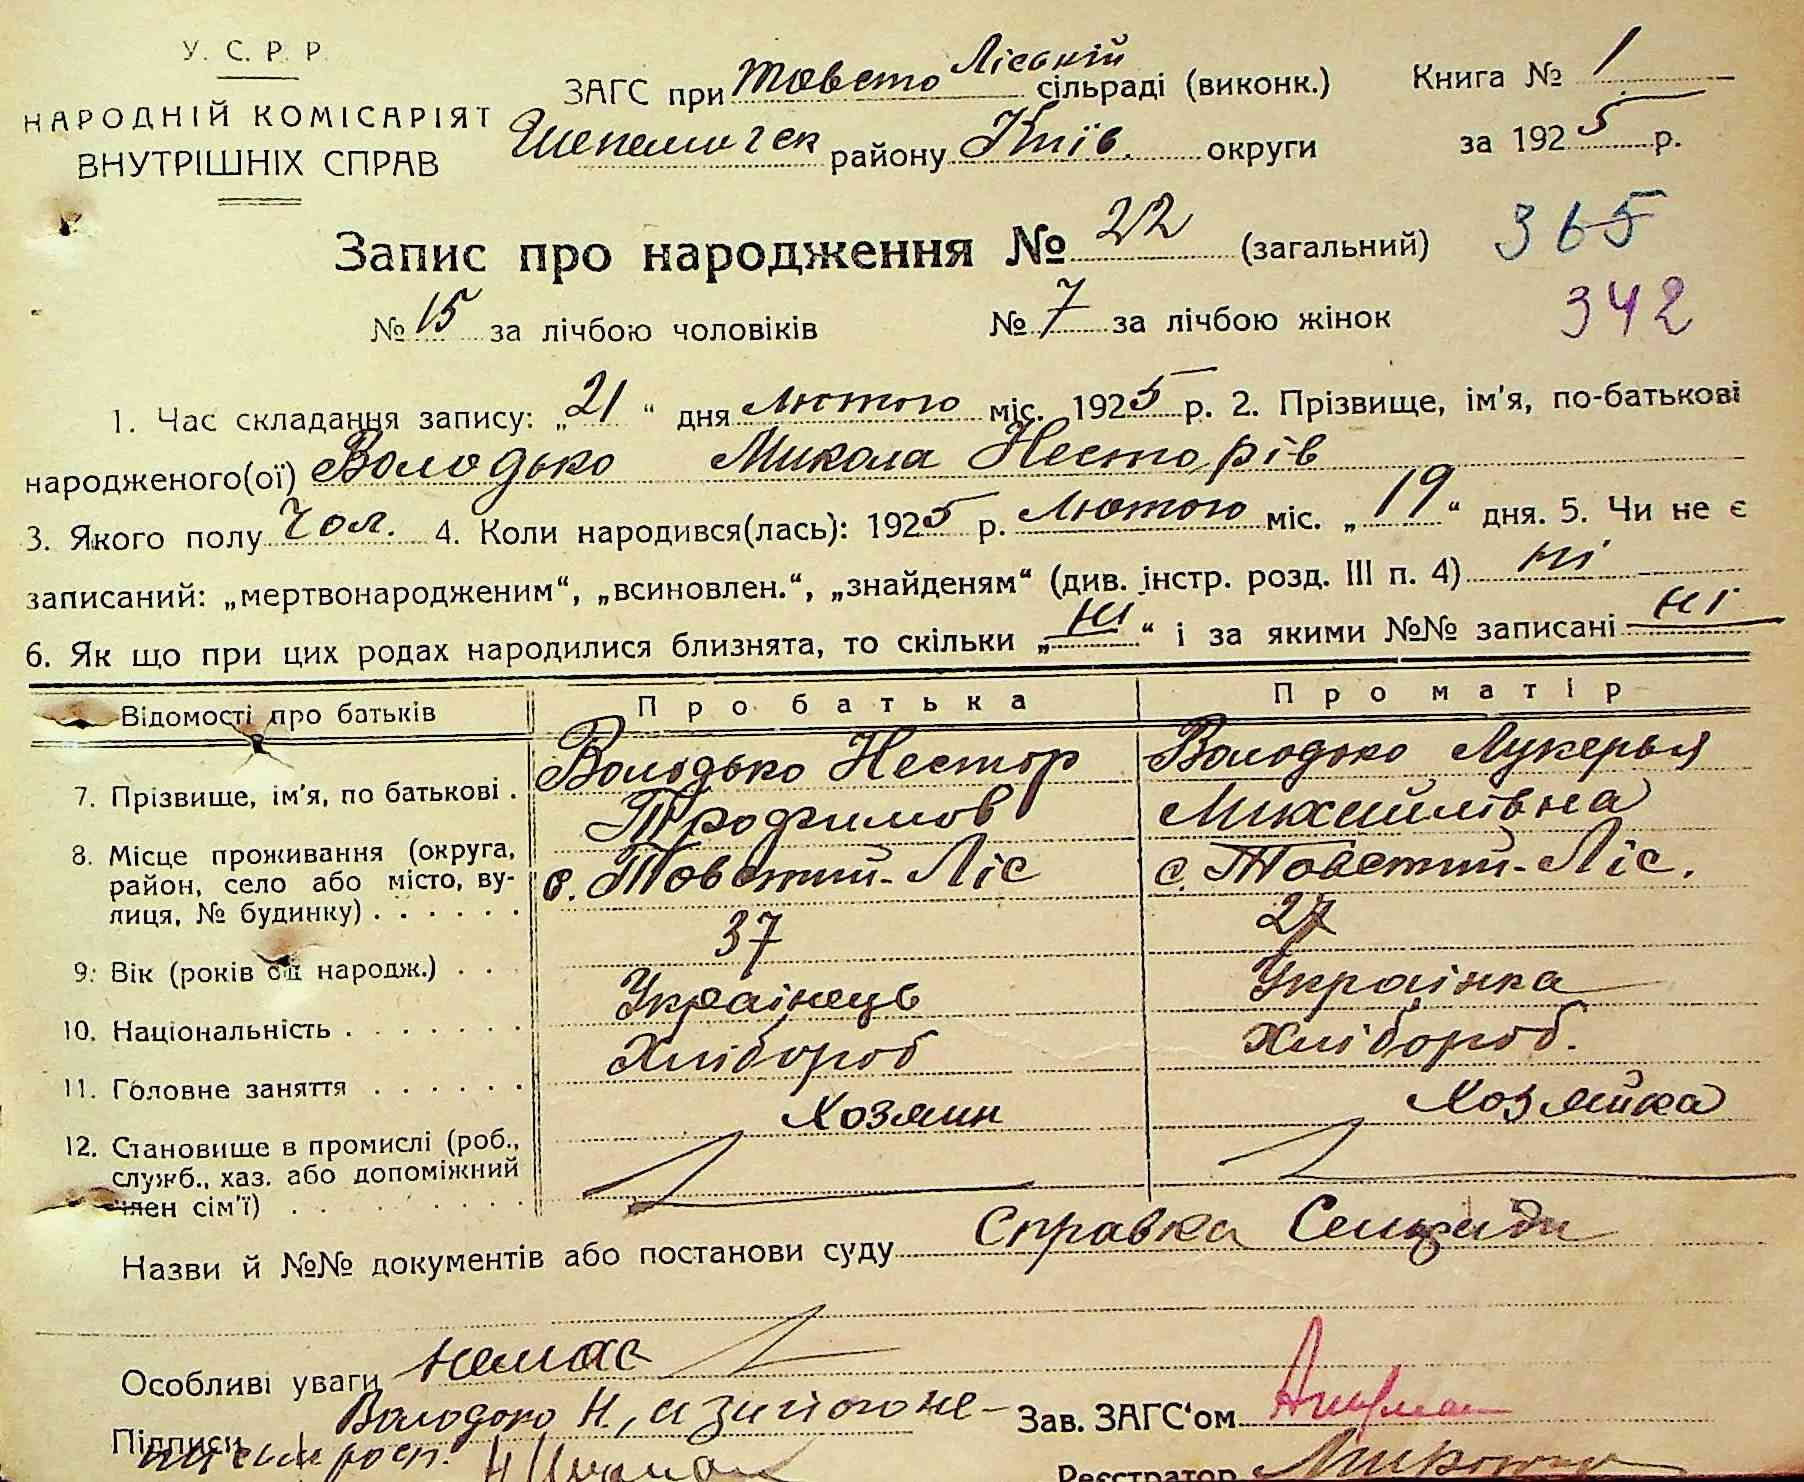 У. С. Р. Р.
НАРОДНІЙ КОМІСАРІЯТ
ВНУТРІШНІХ СПРАВ
ЗАГС при Товсто Ліській сільраді (виконк.) Книга № 1
Шепелич ск району Київ. округи за 1925 р.
Запис про народження № 22 (загальний) 365
№ 15 за лічбою чоловіків № 7 за лічбою жінок 342
1. Час складання запису: „21“ дня лютого міс. 1925 р. 2. Прізвище, ім'я, по-батькові
народженого(ої) Володько Микола Несторів
3. Якого полу чол. 4. Коли народився(лась): 1925 р. лютого міс. „19“ дня. 5. Чи не є
записаний: „мертвонародженим“, „всиновлен.“, „знайденям“ (див. інстр. розд. III п. 4) ні
6. Як що при цих родах народилися близнята, то скільки „ні“ і за якими №№ записані ні
Відомості про батьків Про батька Про матір
7. Прізвище, ім'я, по батькові . Володько Нестор Трофимов Володько Лукерья Михайлівна
8. Місце проживання (округа, район, село або місто, вулиця, № будинку) . . . . . . с. Товстий-Ліс с. Товстий-Ліс.
9. Вік (років від народж.) . . . 37 27
10. Національність . . . . . . . Українець Українка
11. Головне заняття . . . . . . Хлібороб Хлібороб.
12. Становище в промислі (роб., служб., хаз. або допоміжний член сім'ї) . . . . . . . . . Хозяин Хозяйка
Назви й №№ документів або постанови суду Справка Сельради
Особливі уваги немає
Підписи Володько Н, а за його не-
Зав. ЗАГС'ом
Реєстратор